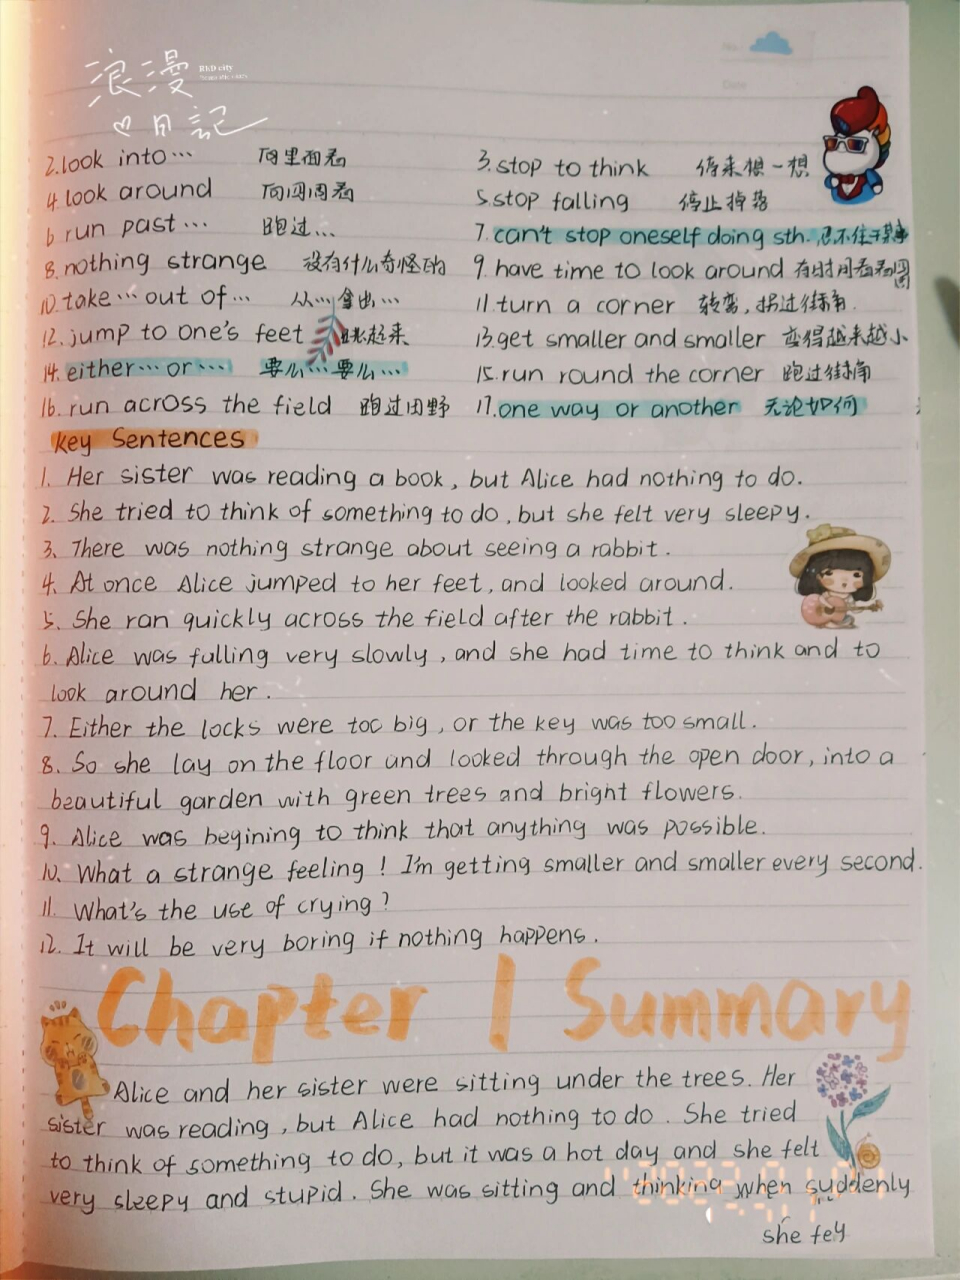 浪漫
日記
2.look into… 向里面看 3.stop to think 停来想一想
4.look around 向四周看 5.stop falling 停止掉落
6 run past … 跑过… 7.can't stop oneself doing sth. 忍不住干某事
8.nothing strange 没有什么奇怪的 9.have time to look around 有时间看看四周
10.take…out of… 从…拿出… 11.turn a corner 转弯,拐过街角.
12.jump to one's feet 跳起来 13.get smaller and smaller 变得越来越小
14.either…or… 要么…要么… 15.run round the corner 跑过街角
16. run across the field 跑过田野 17.one way or another 无论如何
key Sentences
1. Her sister was reading a book, but Alice had nothing to do.
2. She tried to think of something to do, but she felt very sleepy.
3. There was nothing strange about seeing a rabbit.
4. At once Alice jumped to her feet, and looked around.
5. She ran quickly across the field after the rabbit.
6. Alice was fulling very slowly, and she had time to think and to
look around her.
7. Either the locks were too big, or the key was too small.
8. So she lay on the floor and looked through the open door, into a
beautiful garden with green trees and bright flowers.
9. Alice was begining to think that anything was possible.
10. What a strange feeling! I'm getting smaller and smaller every second.
11. What's the use of crying?
12. It will be very boring if nothing happens.
Chapter 1 Summary
Alice and her sister were sitting under the trees. Her
sister was reading, but Alice had nothing to do. She tried
to think of something to do, but it was a hot day and she felt
very sleepy and stupid. She was sitting and thinking when suddenly
she fey